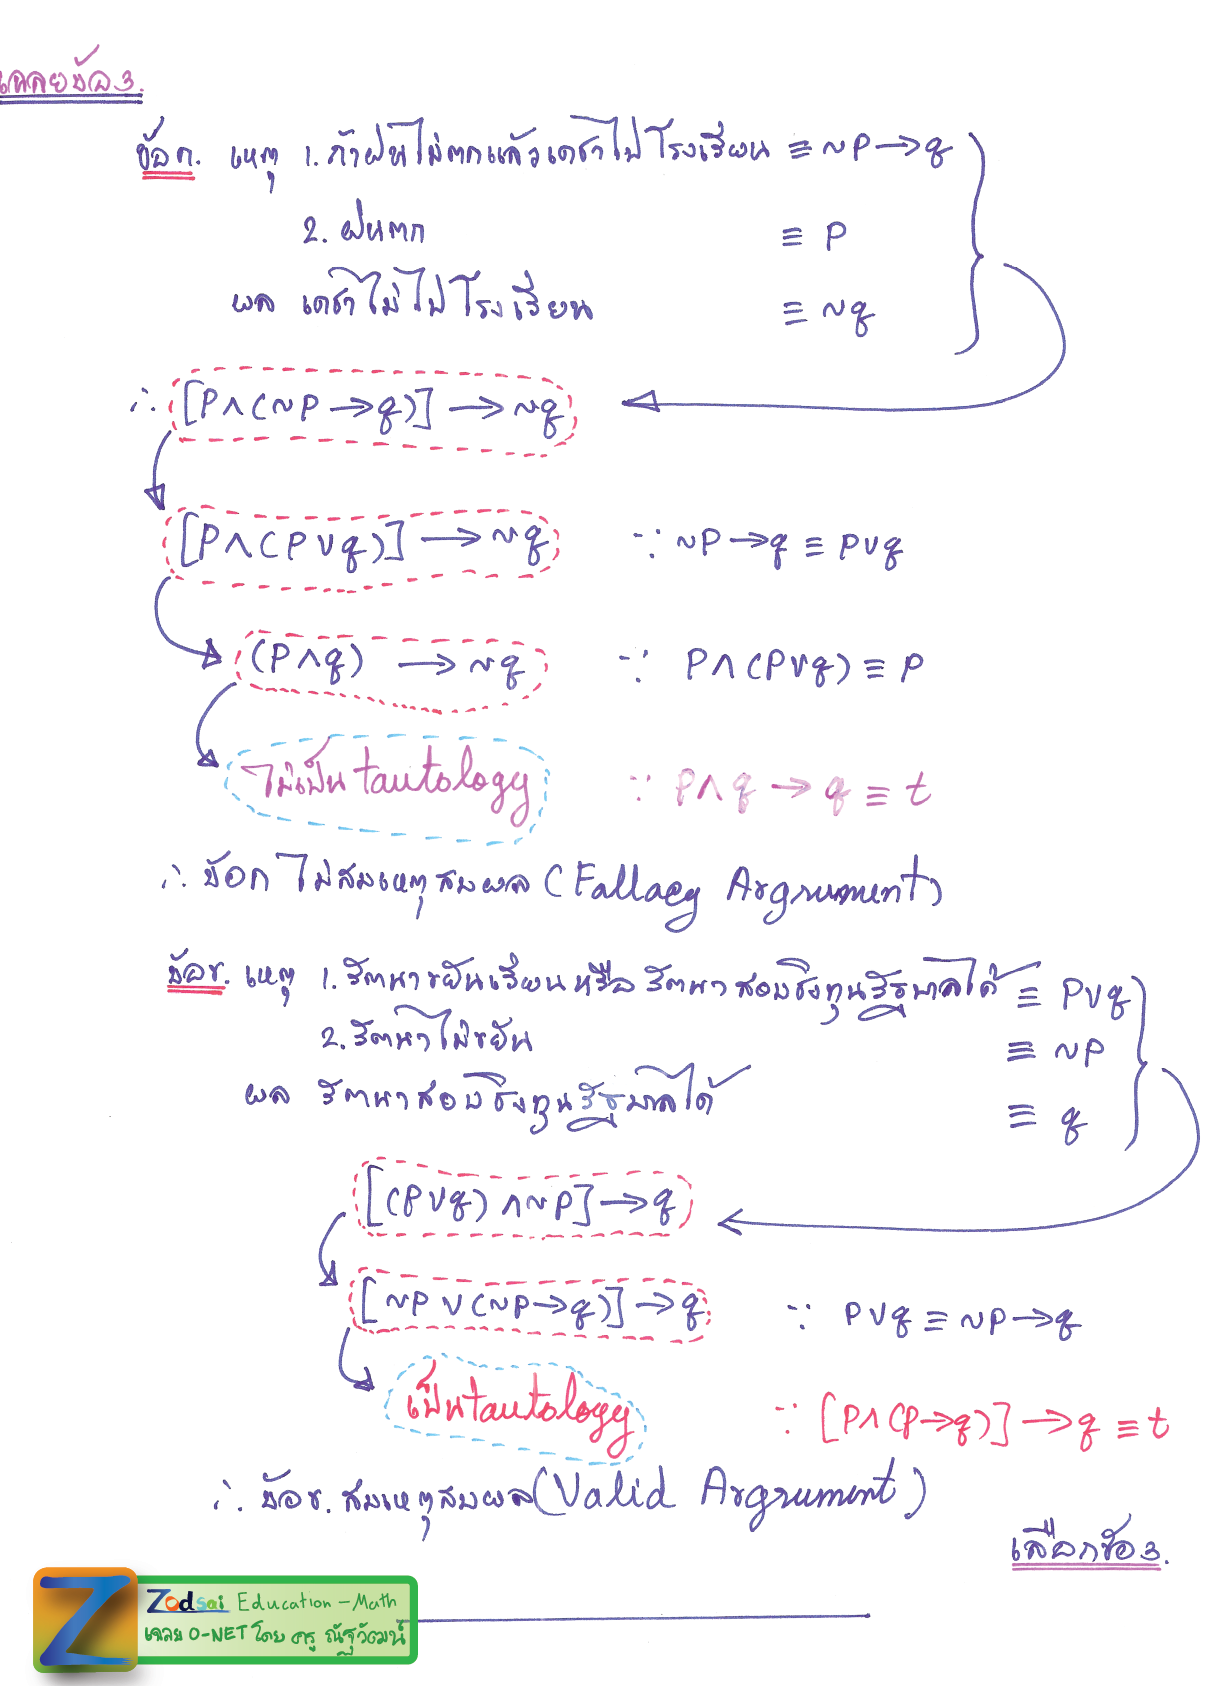 เฉลยข้อ 3.
ข้อ ก. เหตุ 1. ถ้าฝนไม่ตกแล้วเดชาไปโรงเรียน ≡ ~P → q
2. ฝนตก ≡ P
ผล เดชาไม่ไปโรงเรียน ≡ ~q
∴ [P ∧ (~P → q)] → ~q
[P ∧ (P ∨ q)] → ~q ∵ ~P → q ≡ P ∨ q
(P ∧ q) → ~q ∵ P ∧ (P ∨ q) ≡ P
ไม่เป็น tautology ∵ P ∧ q → q ≡ t
∴ ข้อ ก ไม่สมเหตุสมผล (Fallacy Argrument)
ข้อ ข. เหตุ 1. รัตนาขยันเรียนหรือรัตนาสอบชิงทุนรัฐบาลได้ ≡ P ∨ q
2. รัตนาไม่ขยัน ≡ ~P
ผล รัตนาสอบชิงทุนรัฐบาลได้ ≡ q
[(P ∨ q) ∧ ~P] → q
[~P ∨ (~P → q)] → q ∵ P ∨ q ≡ ~P → q
เป็น tautology ∵ [P ∧ (P → q)] → q ≡ t
∴ ข้อ ข. สมเหตุสมผล (Valid Argrument)
เลือกข้อ 3.
Z Zodsai Education - Math
เฉลย O-NET โดย ครู ณัฐวัฒน์